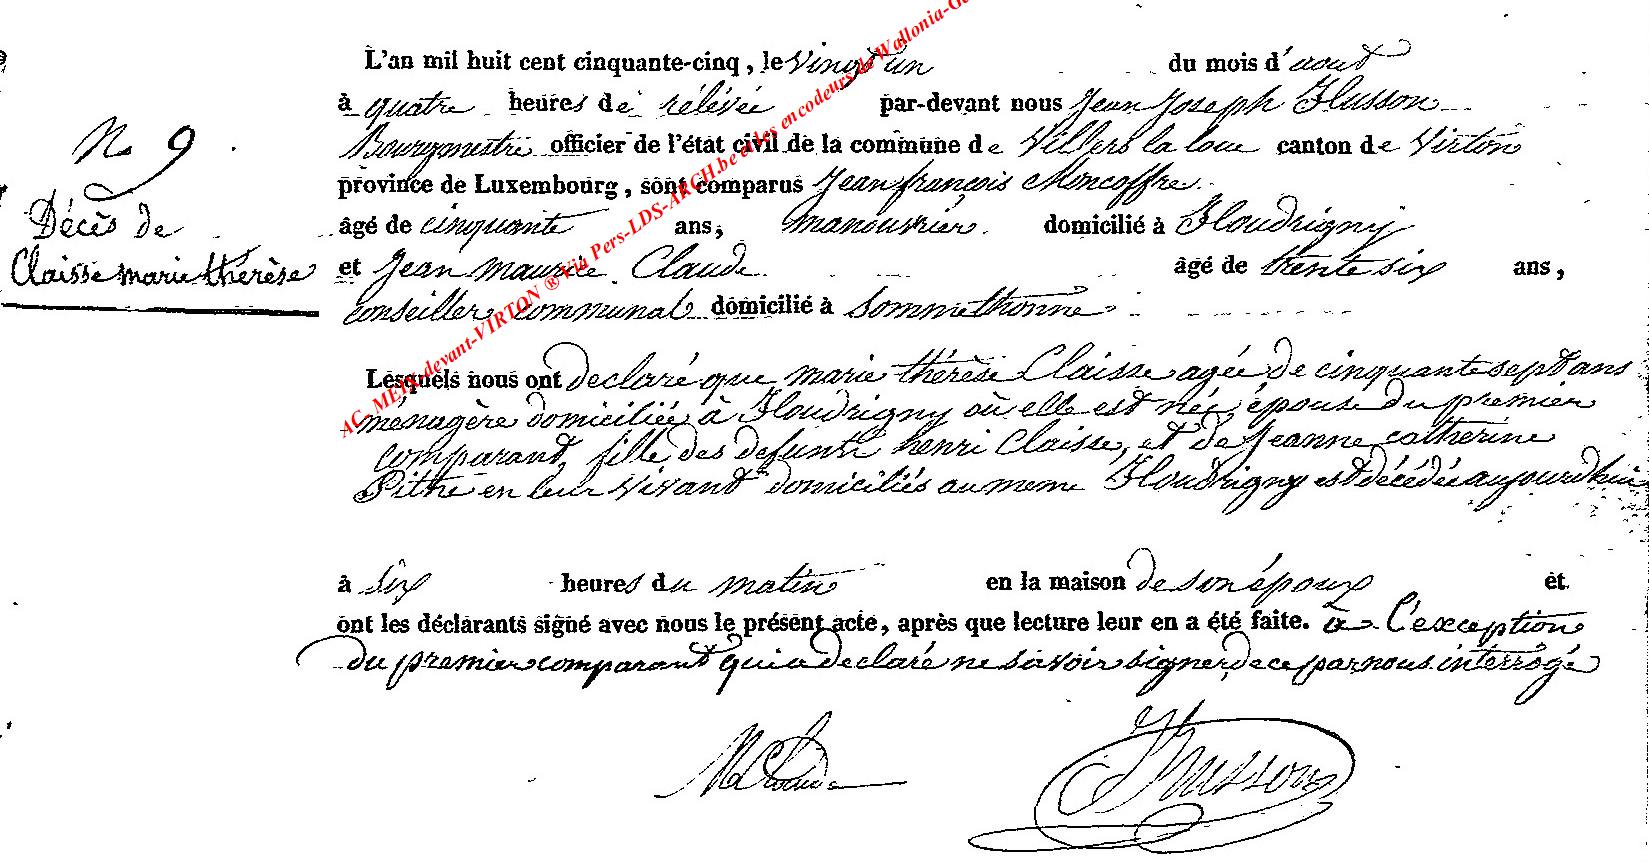 L'an mil huit cent cinquante-cinq, le vingt un du mois d'aout
à quatre heures de rélévée par-devant nous Jean Joseph Husson
Bourgmestre officier de l'état civil de la commune de Villers la loue canton de Virton
province de Luxembourg, sont comparus Jean françois Moncoffre
âgé de cinquante ans, manouvrier domicilié à Houdrigny
et Jean maurice Claude âgé de trente six ans,
conseiller communal domicilié à Sommethonne
Lesquels nous ont declaré que marie thérèse Claisse agée de cinquante sept ans
ménagère domiciliée à Houdrigny où elle est née, épouse du premier
comparant, fille des defunts henri Claisse, et de Jeanne catherine
Pithé en leur vivant domiciliés au meme Houdrigny est décédée aujourd'hui
à six heures du matin en la maison de son époux et
ont les déclarants signé avec nous le présent acte, après que lecture leur en a été faite. à L'exception
du premier comparant qui a declaré ne savoir signer, de ce par nous interrogé
N° 9
Décès de
Claisse marie thérèse
M Claude
JHusson
AC_MEIX-devant-VIRTON ® Via Pers-LDS-ARCH.be et les encodeurs de Wallonia-G